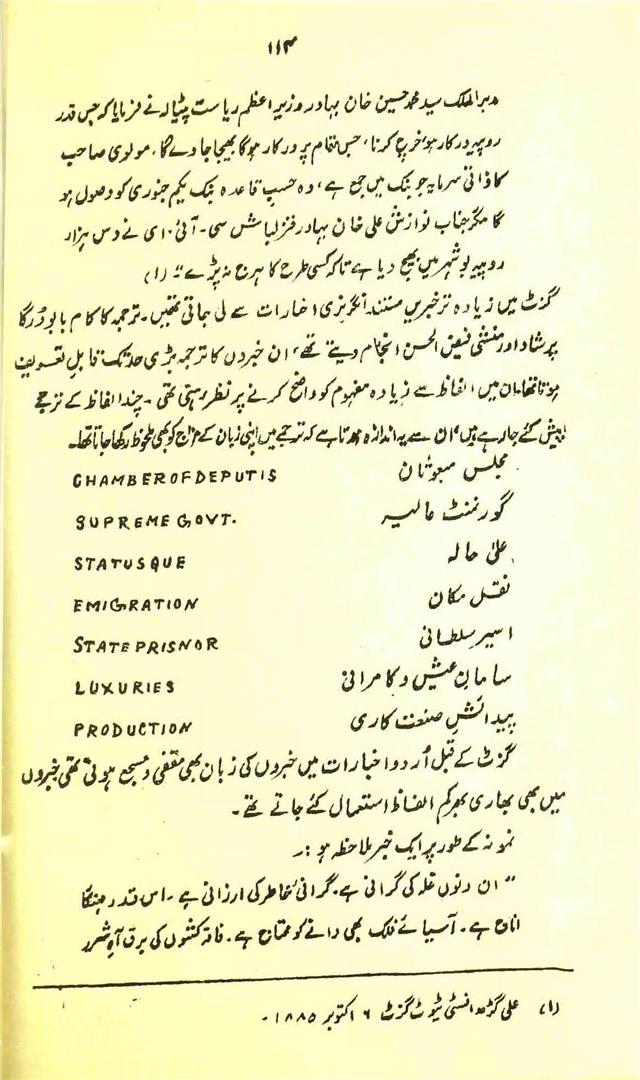 ۱۱۴
مدبر الملک سید محمد حسین خان بہادر وزیر اعظم ریاست پٹیالہ نے فرمایا کہ جس قدر
روپیہ درکار ہو خرچ کرنا، جس مقام پر درکار ہوگا بھیجا جاوے گا، مولوی صاحب
کا ذاتی سرمایہ جو بنک میں جمع ہے، وہ حسب قاعدہ بنک یکم جنوری کو وصول ہو
گا مگر جناب نوازش علی خان بہادر قزلباش سی۔ آئی۔ ای نے دس ہزار
روپیہ بوشہر میں بھیج دیا ہے تاکہ کسی طرح کا ہرج نہ پڑے" (۱)
گزٹ میں زیادہ تر خبریں مستند انگریزی اخبارات سے لی جاتی تھیں۔ ترجمہ کا کام بابو درگا
پرشاد اور منشی فیض الحسن انجام دیتے تھے، ان خبروں کا ترجمہ بڑی حد تک قابل تعریف
ہوتا تھا۔ ان میں الفاظ سے زیادہ مفہوم کو واضح کرنے پر نظر رہتی تھی۔ چند الفاظ کے ترجمے
پیش کئے جا رہے ہیں، ان سے یہ اندازہ ہوتا ہے کہ ترجمے میں اپنی زبان کے مزاج کو بھی ملحوظ رکھا جاتا تھا۔
مجلس مبعوثان CHAMBER OF DEPUTIS
گورنمنٹ عالیہ SUPREME GOVT.
علیٰ حالہ STATUSQUE
نقل مکان EMIGRATION
اسیر سلطانی STATE PRISNOR
سامان عیش و کامرانی LUXURIES
پیدائش صنعت کاری PRODUCTION
گزٹ کے قبل اُردو اخبارات میں خبروں کی زبان بھی مقفیٰ و مسجع ہوتی تھی خبروں
میں بھی بھاری بھرکم الفاظ استعمال کئے جاتے تھے۔
نمونہ کے طور پر ایک خبر ملاحظہ ہو :۔
"ان دنوں غلہ کی گرانی ہے۔ گرانیٔ خاطر کی ارزانی ہے۔ اس قدر مہنگا
اناج ہے۔ آسیائے فلک بھی دانے کو محتاج ہے۔ فاقہ کشوں کی برق آہِ شرر
(۱) علی گڑھ انسٹی ٹیوٹ گزٹ ۶ اکتوبر ۱۸۸۵۔